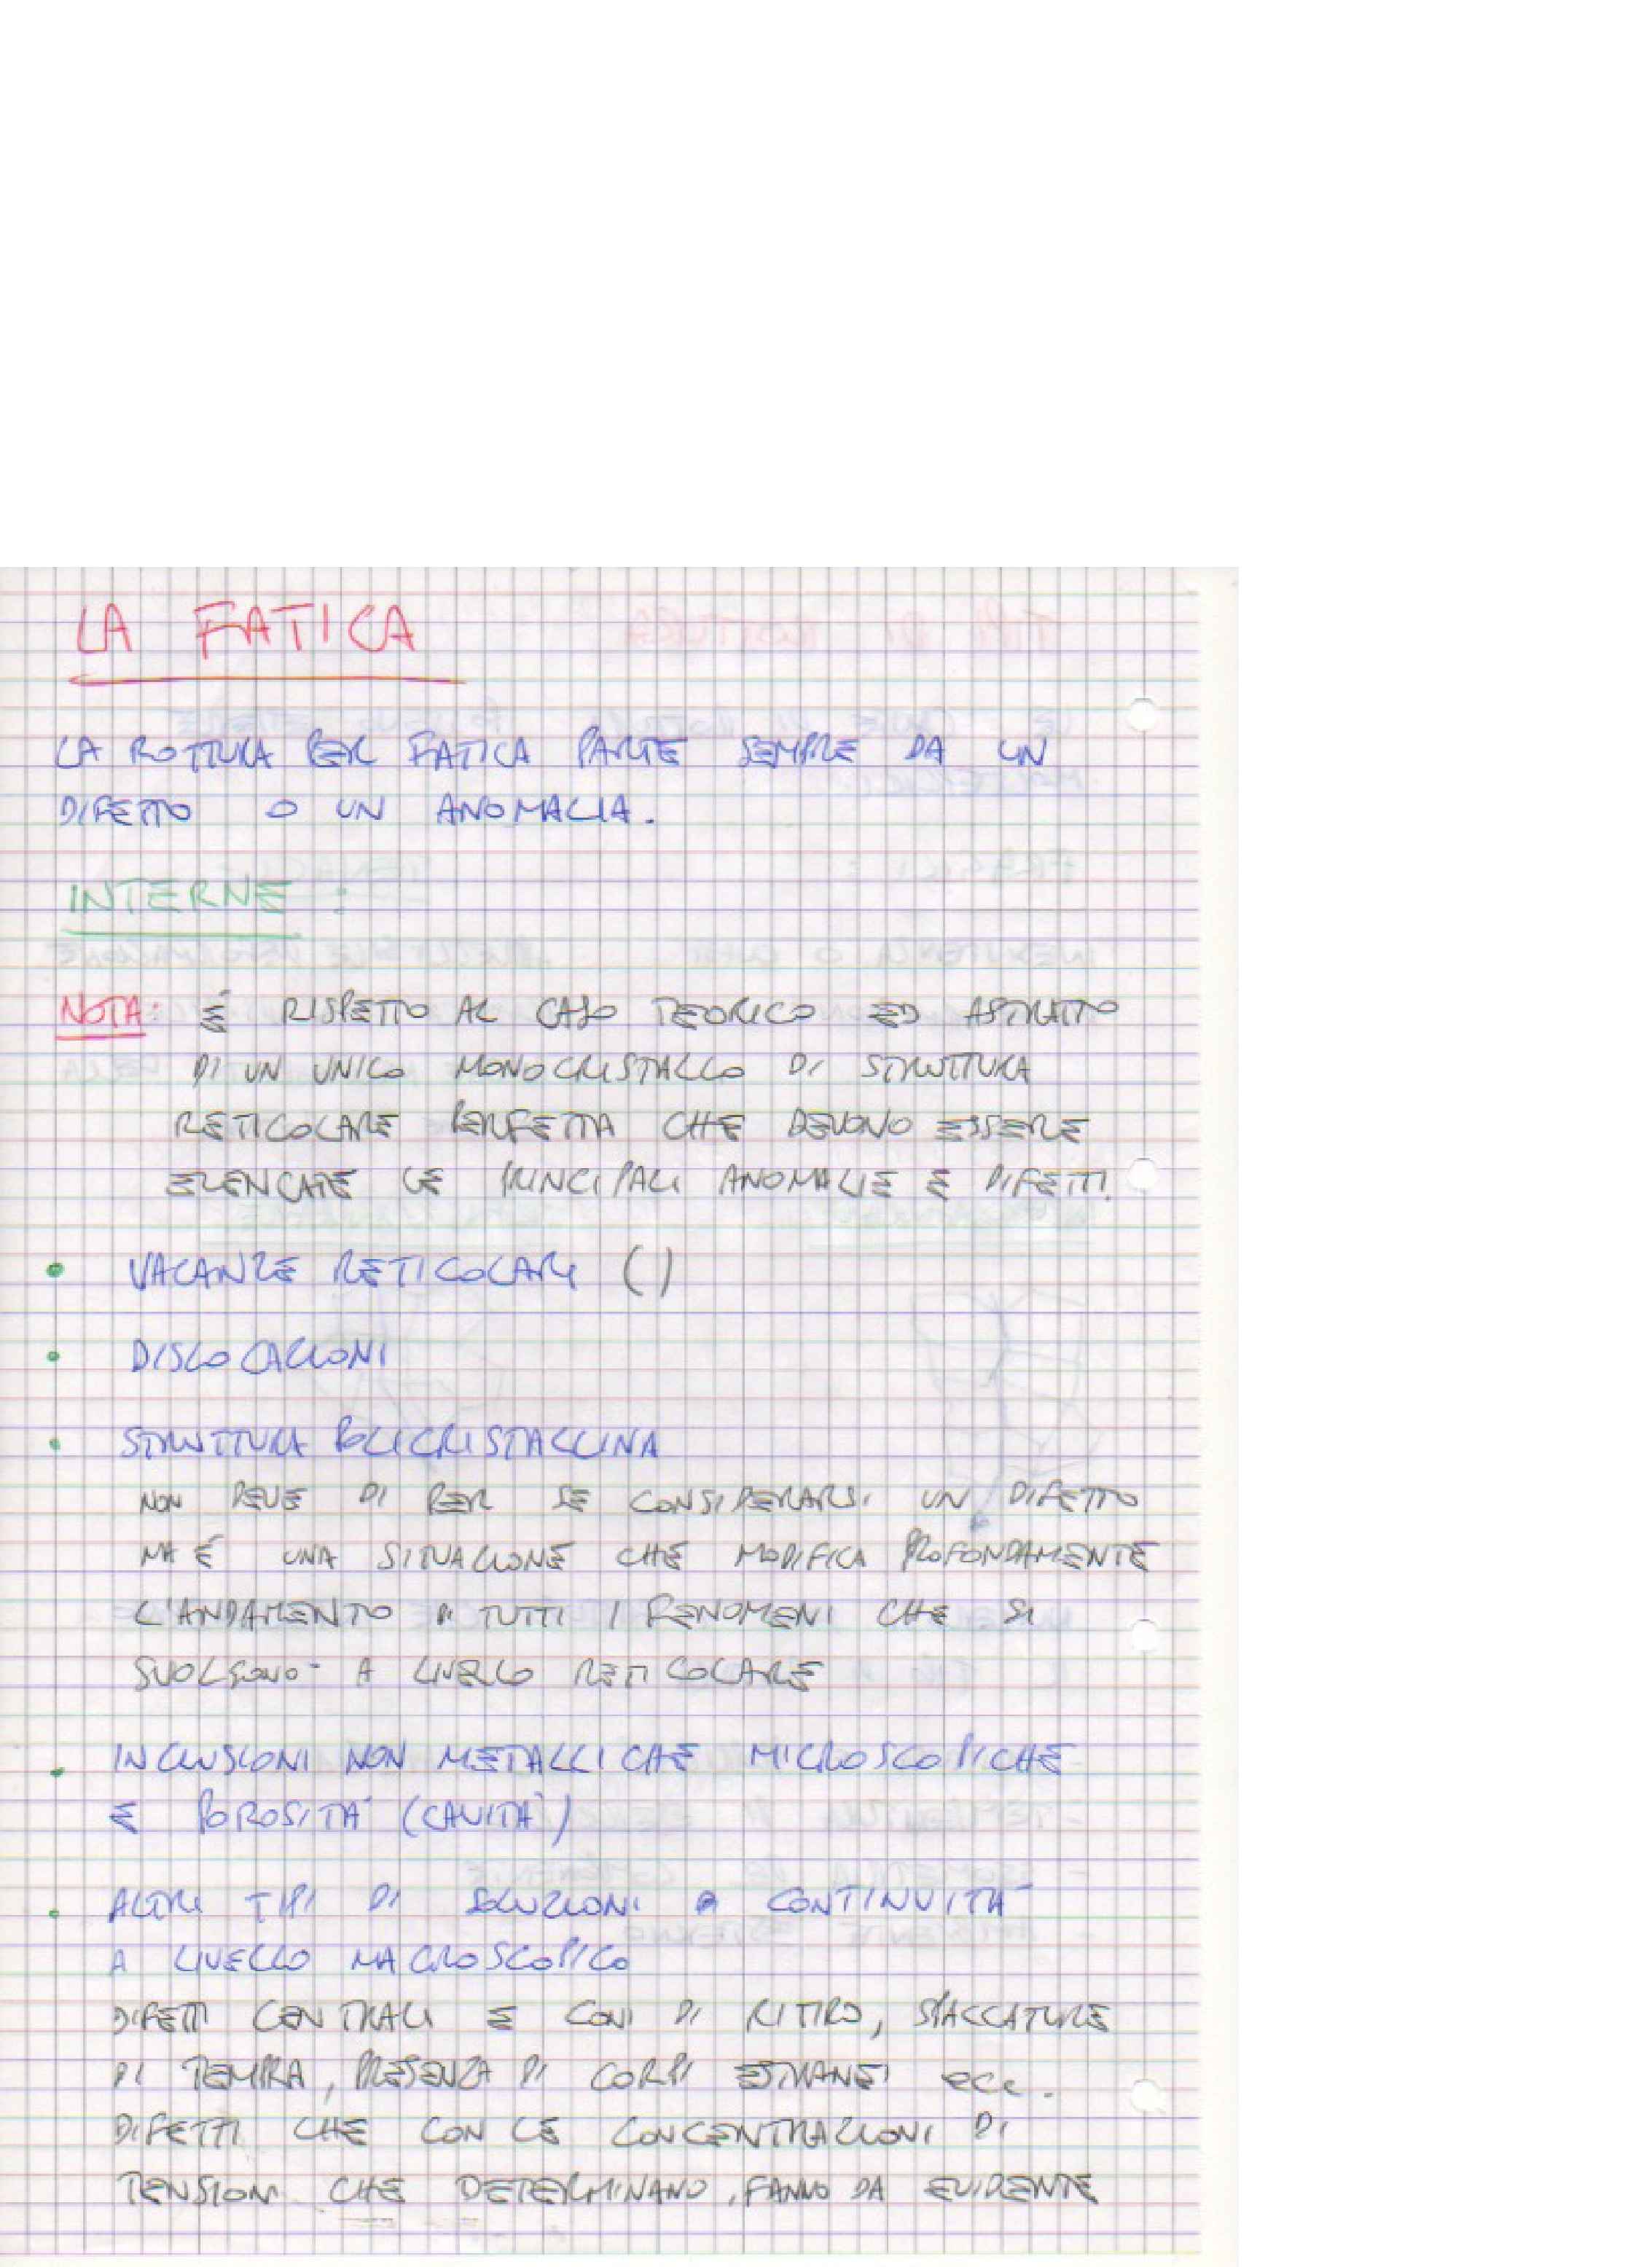 LA FATICA
LA ROTTURA PER FATICA PARTE SEMPRE DA UN
DIFETTO O UN ANOMALIA.
INTERNE :
NOTA: É RISPETTO AL CASO TEORICO ED ASTRATTO
DI UN UNICO MONOCRISTALLO DI STRUTTURA
RETICOLARE PERFETTA CHE DEVONO ESSERE
ELENCATE LE PRINCIPALI ANOMALIE E DIFETTI.
• VACANZE RETICOLARI ()
• DISLOCAZIONI
• STRUTTURA POLICRISTALLINA
NON DEVE DI PER SE CONSIDERARSI UN DIFETTO
MA É UNA SITUAZIONE CHE MODIFICA PROFONDAMENTE
L'ANDAMENTO DI TUTTI I FENOMENI CHE SI
SVOLGONO A LIVELLO RETICOLARE
• INCLUSIONI NON METALLICHE MICROSCOPICHE
E POROSITA' (CAVITA')
• ALTRI TIPI DI SOLUZIONI DI CONTINUITA'
A LIVELLO MACROSCOPICO
DIFETTI CENTRALI E CONI DI RITIRO, SPACCATURE
DI TEMPRA, PRESENZA DI CORPI ESTRANEI ecc.
DIFETTI CHE CON LE CONCENTRAZIONI DI
TENSIONI CHE DETERMINANO, FANNO DA EVIDENTE